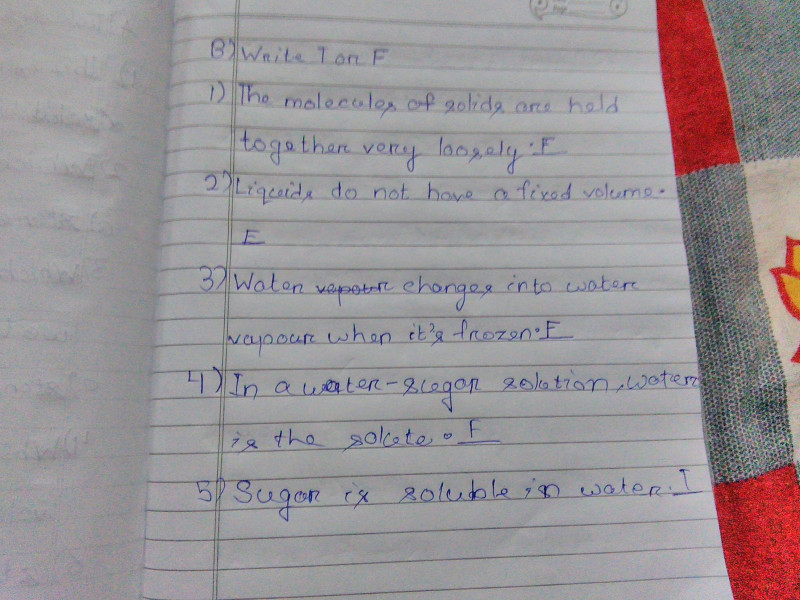 B) Write T or F
1) The molecules of solids are held
together very loosely. F
2) Liquids do not have a fixed volume.
F
3) Water vapour changes into water
vapour when it's frozen. F
4) In a water-sugar solution, water
is the solute. F
5) Sugar is soluble in water. T